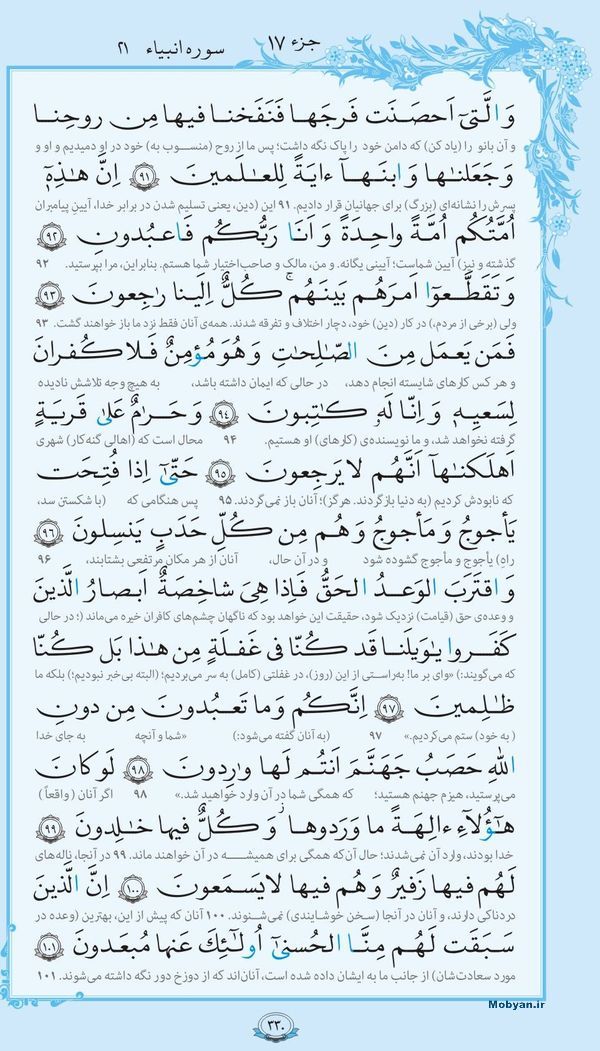 جزء ۱۷ سوره انبیاء ۲۱
وَ الَّتیٓ اَحصَنَت فَرجَها فَنَفَخنا فیها مِن روحِنا
و آن بانو را (یاد کن) که دامن خود را پاک نگه داشت؛ پس ما از روح (منسوب به) خود در او دمیدیم و او و
وَ جَعَلنٰها وَ ابنَهآ ءایَةً لِلعٰلَمینَ ﴿۹۱﴾ اِنَّ هٰذِهٖٓ
پسرش را نشانه‌ای (بزرگ) برای جهانیان قرار دادیم. ۹۱ این (دین، یعنی تسلیم شدن در برابر خدا، آیینِ پیامبران
اُمَّتُکُم اُمَّةً واحِدَةً وَ اَنَا رَبُّکُم فَاعبُدونِ ﴿۹۲﴾
گذشته و نیز) آیین شماست؛ آیینی یگانه. و من، مالک و صاحب‌اختیار شما هستم. بنابراین، مرا بپرستید. ۹۲
وَ تَقَطَّعوٓا اَمرَهُم بَینَهُم ۖ کُلٌّ اِلَینا رٰجِعونَ ﴿۹۳﴾
ولی (برخی از مردم،) در کار (دین) خود، دچار اختلاف و تفرقه شدند. همه‌ی آنان فقط نزد ما باز خواهند گشت. ۹۳
فَمَن یَعمَل مِنَ الصّٰلِحٰتِ وَ هُوَ مُؤمِنٌ فَلا کُفرانَ
و هر کس کارهای شایسته انجام دهد، در حالی که ایمان داشته باشد، به هیچ وجه تلاشش نادیده
لِسَعیِهٖ وَ اِنّا لَهٗ کٰتِبونَ ﴿۹۴﴾ وَ حَرامٌ عَلیٰ قَریَةٍ
گرفته نخواهد شد، و ما نویسنده‌ی (کارهای) او هستیم. ۹۴ محال است که (اهالی گنه‌کار) شهری
اَهلَکنٰهآ اَنَّهُم لا یَرجِعونَ ﴿۹۵﴾ حَتّیٰٓ اِذا فُتِحَت
که نابودش کردیم (به دنیا بازگردند. هرگز)؛ آنان باز نمی‌گردند. ۹۵ پس هنگامی که (با شکستن سد،
یَأجوجُ وَ مَأجوجُ وَ هُم مِن کُلِّ حَدَبٍ یَنسِلونَ ﴿۹۶﴾
راهِ) یأجوج و مأجوج گشوده شود و در آن حال، آنان از هر مکان مرتفعی بشتابند، ۹۶
وَ اقتَرَبَ الوَعدُ الحَقُّ فَاِذا هِیَ شاخِصَةٌ اَبصارُ الَّذینَ
و وعده‌ی حق (قیامت) نزدیک شود، حقیقت این خواهد بود که ناگهان چشم‌های کافران خیره می‌ماند (؛ در حالی
کَفَروا یٰوَیلَنا قَد کُنّا فی غَفلَةٍ مِن هٰذا بَل کُنّا
که می‌گویند:) «وای بر ما! به‌راستی از این (روز)، در غفلتی (کامل) به سر می‌بردیم؛ (البته بی‌خبر نبودیم؛) بلکه ما
ظٰلِمینَ ﴿۹۷﴾ اِنَّکُم وَ ما تَعبُدونَ مِن دونِ
(به خود) ستم می‌کردیم.» ۹۷ (به آنان گفته می‌شود:) «شما و آنچه به جای خدا
اللهِ حَصَبُ جَهَنَّمَ اَنتُم لَها وٰرِدونَ ﴿۹۸﴾ لَو کانَ
می‌پرستید، هیزم جهنم هستید؛ که همگی شما در آن وارد خواهید شد.» ۹۸ اگر آنان (واقعاً)
هٰٓؤُلآءِ ءالِهَةً ما وَرَدوها ۖ وَ کُلٌّ فیها خٰلِدونَ ﴿۹۹﴾
خدا بودند، وارد آن نمی‌شدند؛ حال آن‌که همگی برای همیشه در آن خواهند ماند. ۹۹ در آنجا، ناله‌های
لَهُم فیها زَفیرٌ وَ هُم فیها لا یَسمَعونَ ﴿۱۰۰﴾ اِنَّ الَّذینَ
دردناکی دارند، و آنان در آنجا (سخن خوشایندی) نمی‌شنوند. ۱۰۰ آنان که پیش از این، بهترین (وعده در
سَبَقَت لَهُم مِنَّا الحُسنیٰٓ اُولٰٓئِکَ عَنها مُبعَدونَ ﴿۱۰۱﴾
مورد سعادت‌شان) از جانب ما به ایشان داده شده است، آنان‌اند که از دوزخ دور نگه داشته می‌شوند. ۱۰۱
Mobyan.ir
۳۳۰